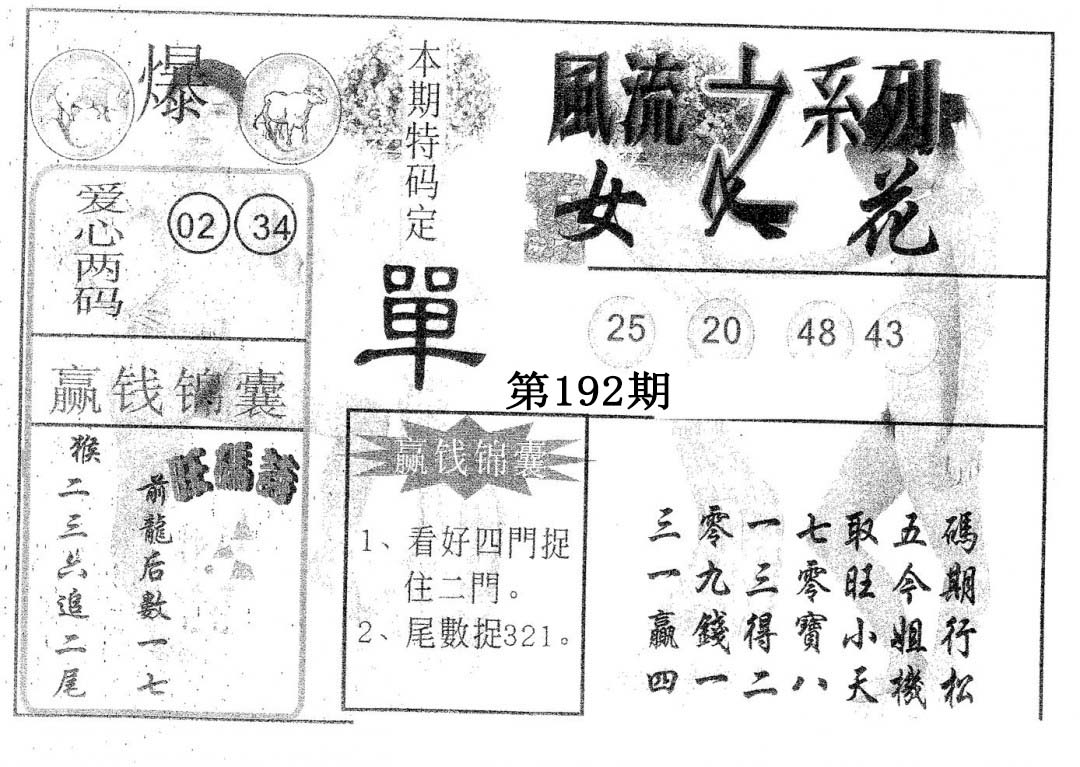 爆
本期特码定
單
風流之系列
女人花
爱心两码
02 34
25 20 48 43
第192期
赢钱锦囊
旺碼詩
前龍后數一七
猴二三六追二尾
赢钱锦囊
1、看好四門捉
住二門。
2、尾數捉321。
三零一七取五碼
一九三零旺今期
贏錢得寶小姐行
四一二八天機松